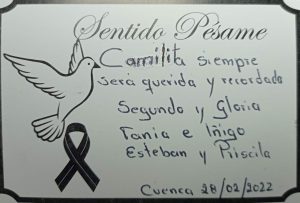 Sentido Pésame
Camilita siempre
será querida y recordada
Segundo y Gloria
Tania e Iñigo
Esteban y Priscila
Cuenca 28/02/2022